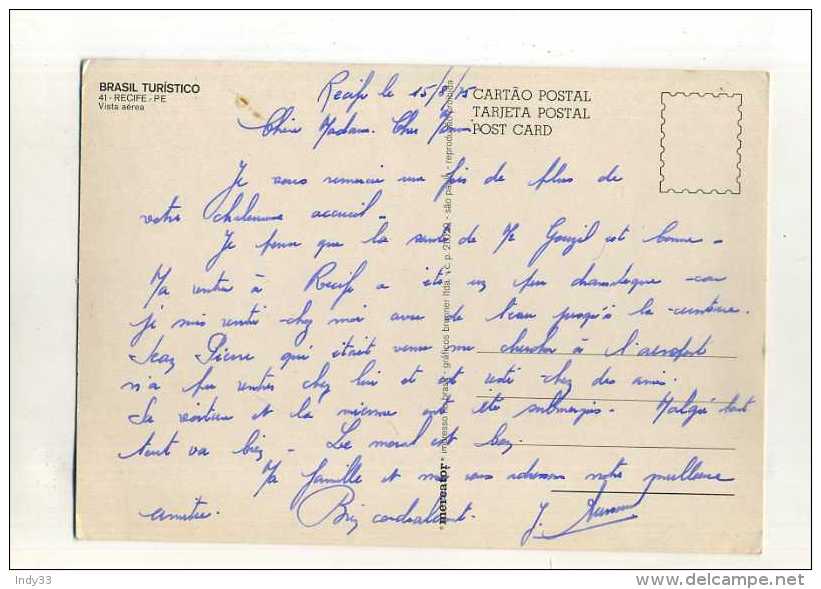 BRASIL TURÍSTICO
41 - RECIFE - PE
Vista aérea
CARTÃO POSTAL
TARJETA POSTAL
POST CARD
Recife le 15/8/75
Chère Madame. Cher
Je vous remercie une fois de plus de
votre chaleureux accueil.
Je pense que la santé de M Gouzil est bonne.
Ma rentrée à Recife a été un peu dramatique car
je suis rentré chez moi avec de l'eau jusqu'à la ceinture.
Jean Pierre qui était venu me chercher à l'aéroport
n'a pu rentrer chez lui et est resté chez des amis.
Sa voiture et la mienne ont été submergées. Malgré tout
tout va bien. Le moral est bon.
Ma famille et moi vous adressons notre meilleure
amitié. Bien cordialement. J.
*mercator* impresso no brasil - gráficos brunner ltda. - c. p. - são paulo - reprodução proibida
Indy33
www.delcampe.net